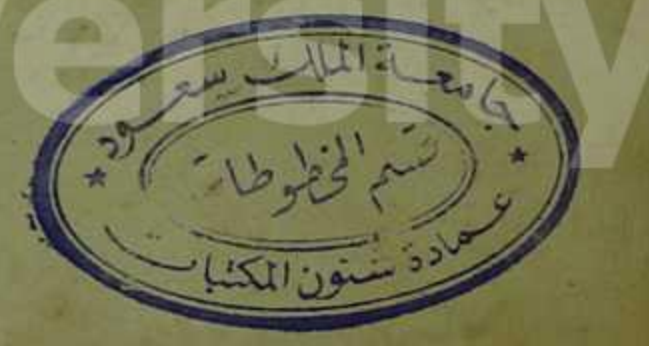 ersity
جامعة الملك سعود
قسم المخطوطات
عمادة شئون المكتبات